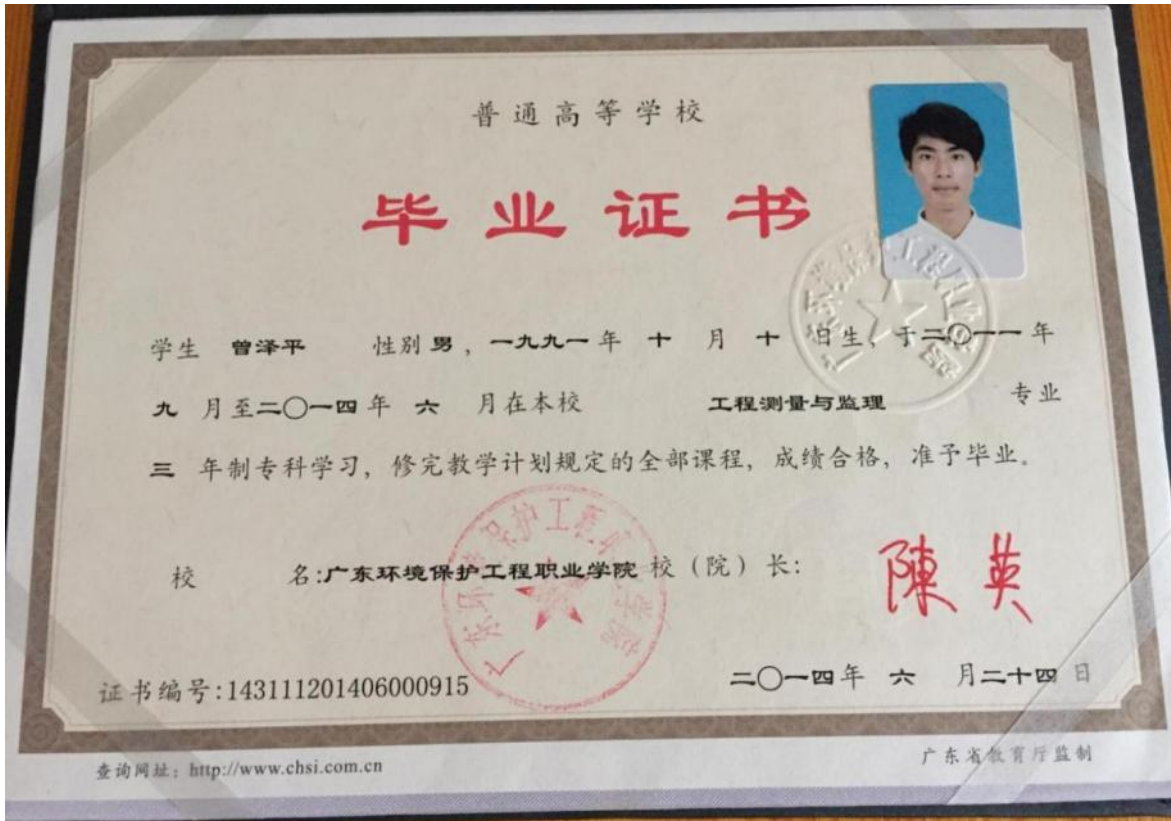 普通高等学校
毕业证书
学生 曾泽平 性别 男，一九九一年 十 月 十 日生，于二〇一一年
九 月至二〇一四年 六 月在本校 工程测量与监理 专业
三 年制专科学习，修完教学计划规定的全部课程，成绩合格，准予毕业。
校 名:广东环境保护工程职业学院 校（院）长: 陳英
广东环境保护工程职业学院
证书编号:143111201406000915 二〇一四年 六 月二十四日
查询网址：http://www.chsi.com.cn 广东省教育厅监制